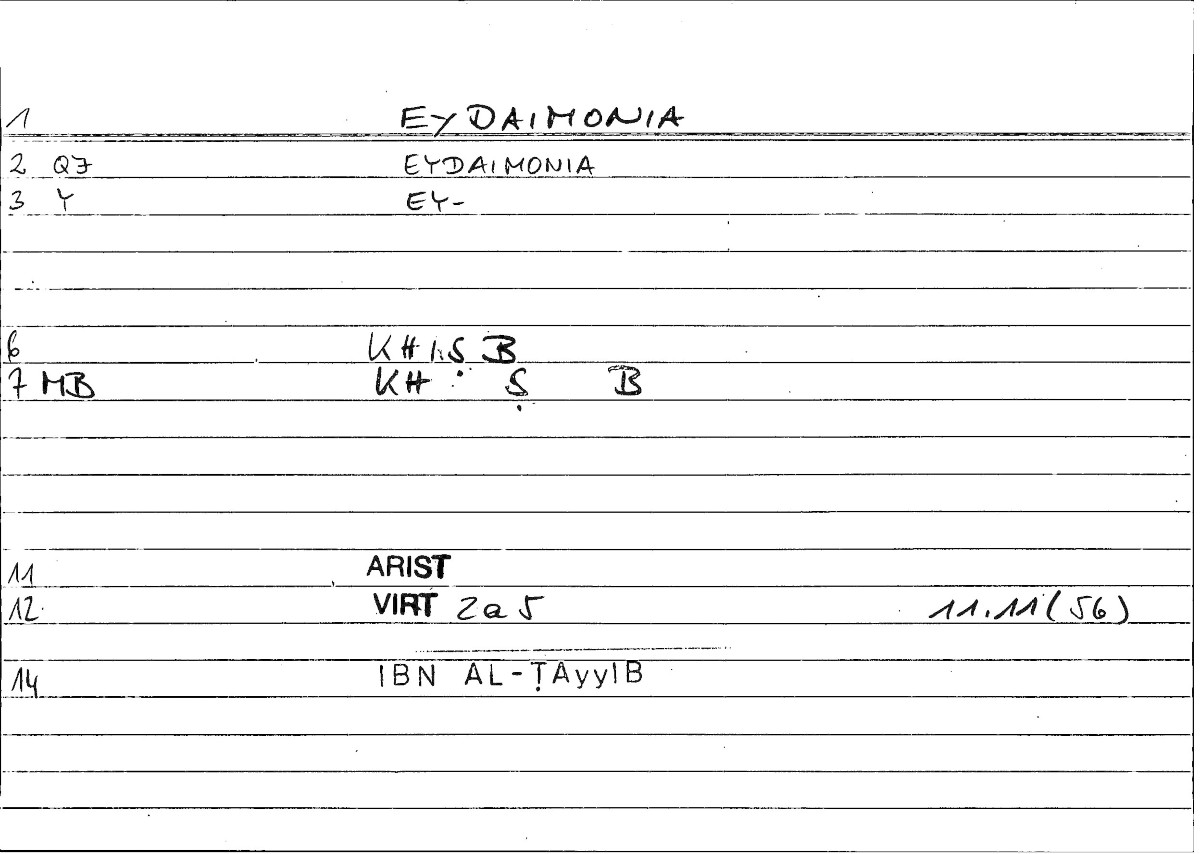 1 EYDAIMONIA
2 QJ EYDAIMONIA
3 Y EY-
6 KHIṢB
7 MB KH Ṣ B
11 ARIST
12 VIRT 2a5 11.11(56)
14 IBN AL-ṬAyyIB